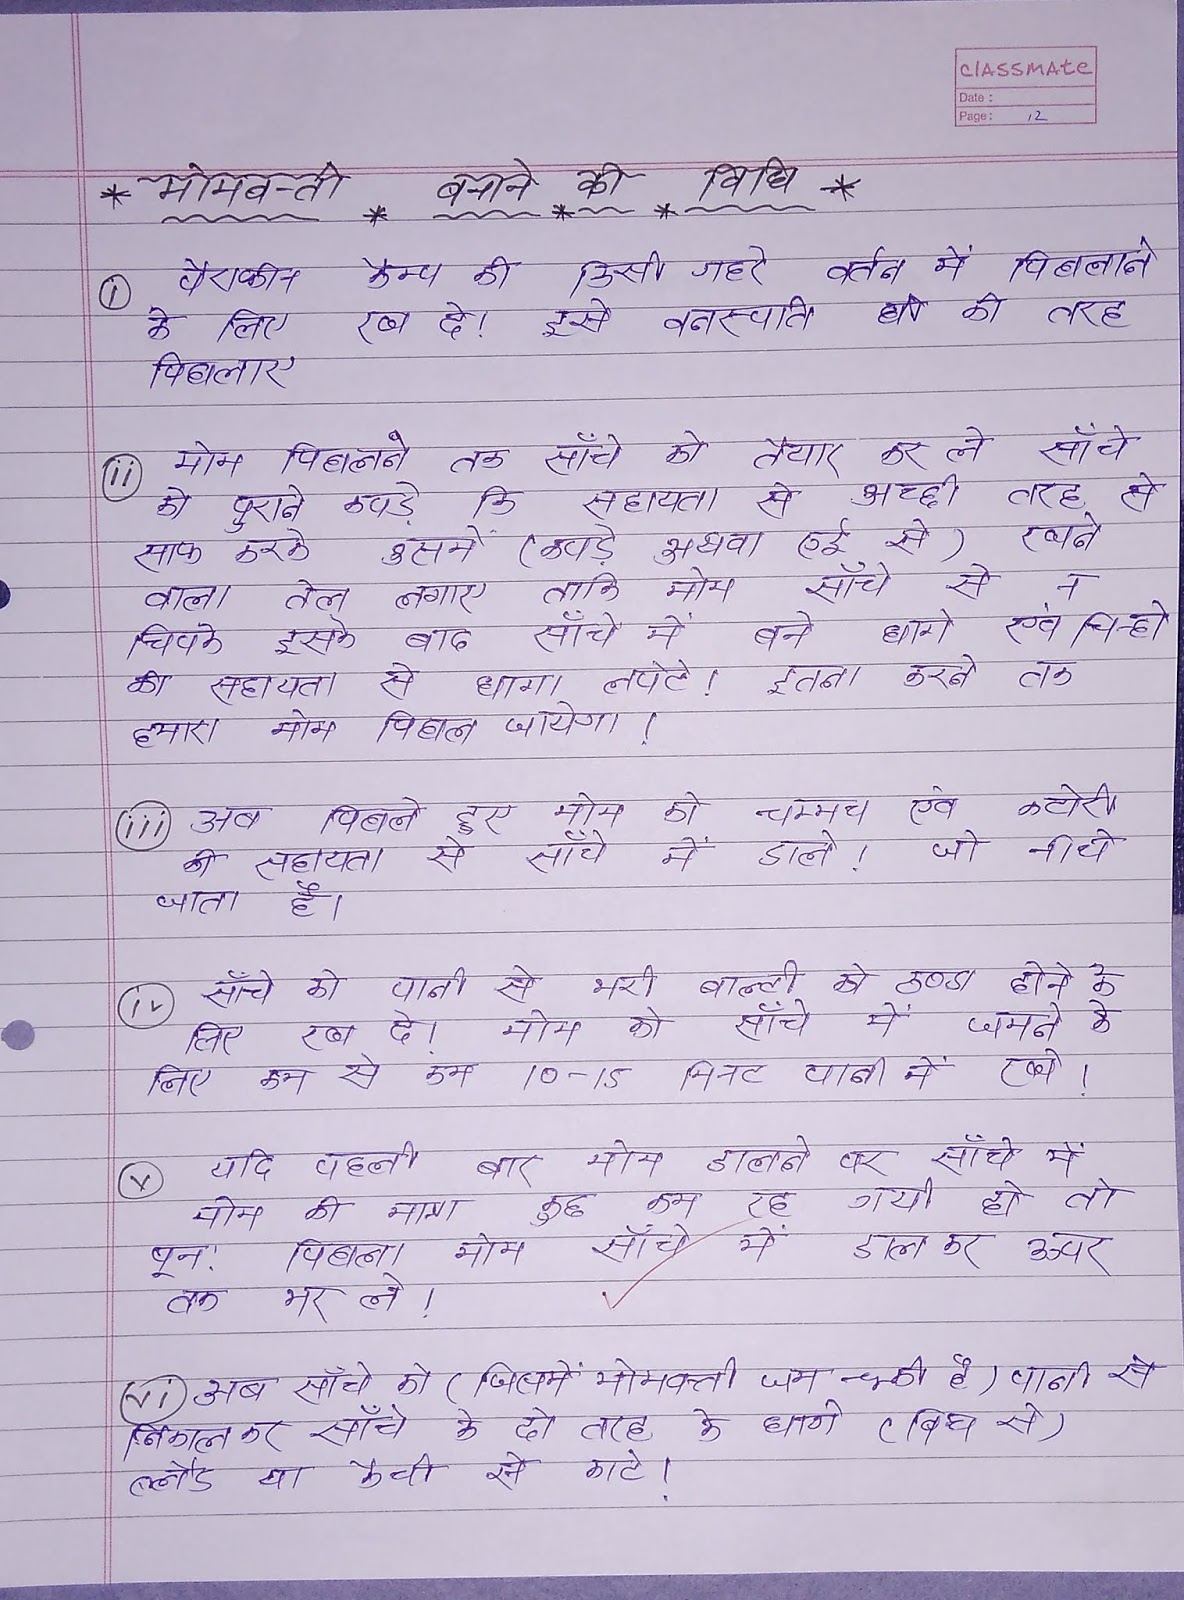 classmate
Date :
Page : 12
* मोमबत्ती * बनाने * की * विधि *
(i) पैराफीन वैम्प को किसी गहरे बर्तन में पिघलाने
के लिए रख दे! इसे वनस्पति घी की तरह
पिघलाए
(ii) मोम पिघलने तक साँचे को तैयार कर ले साँचे
को पुराने कपड़े कि सहायता से अच्छी तरह से
साफ करके उसमें (कपड़े अथवा रूई से) रखने
वाला तेल लगाए ताकि मोम साँचे से न
चिपके इसके बाद साँचे में बने धागे एंव चिन्हो
की सहायता से धागा लपेटे! इतना करने तक
हमारा मोम पिघल जायेगा!
(iii) अब पिघले हुए मोम को चम्मच एंव कटोरी
की सहायता से साँचे में डाले! जो नीचे
जाता है।
(iv) साँचे को पानी से भरी बाल्टी को ठण्डा होने के
लिए रख दे! मोम को साँचे में जमने के
लिए कम से कम 10-15 मिनट पानी में रखे!
(v) यदि पहली बार मोम डालने पर साँचे में
मोम की मात्रा कुछ कम रह गयी हो तो
पून: पिघला मोम साँचे में डाल कर ऊपर
तक भर ले!
(vi) अब साँचे को (जिसमें मोमबत्ती जम चूकी है) पानी से
निकाल कर साँचे के दो तरह के धागे (बिच से)
ब्लैड या कैची से काटे!